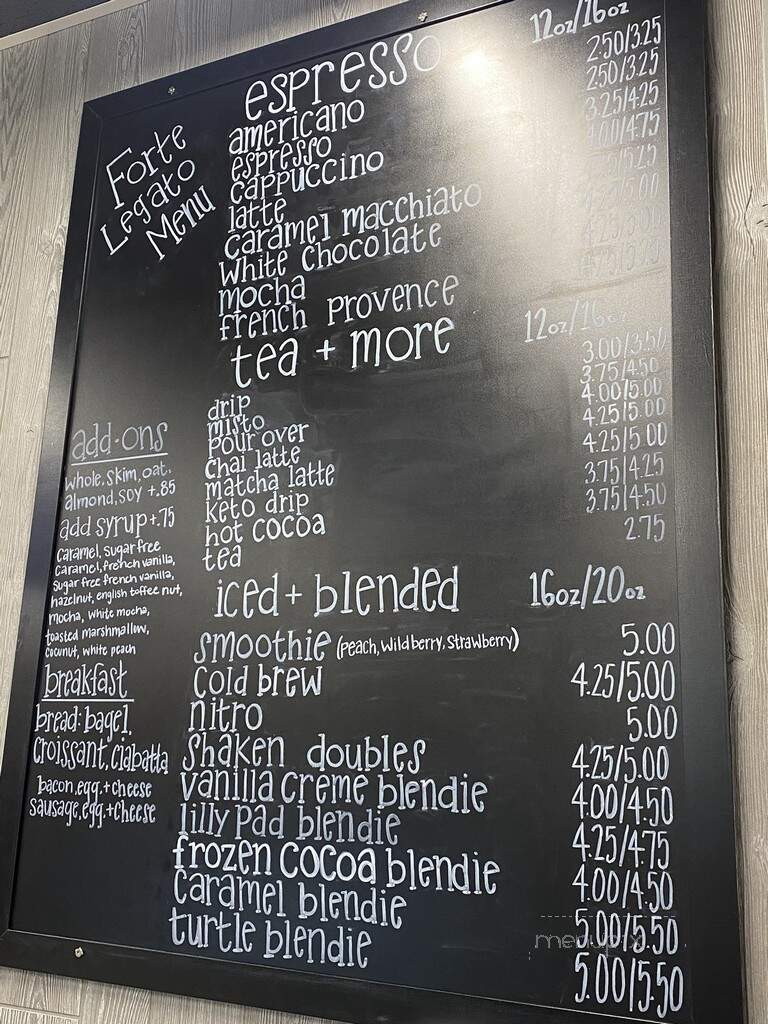 Forte
Legato
Menu
espresso 12oz/16oz
americano 2.50/3.25
espresso 2.50/3.25
cappuccino 3.25/4.25
latte 4.00/4.75
caramel macchiato
white chocolate
mocha
french provence
tea + more 12oz/16oz
drip 3.00/3.50
misto 3.75/4.50
pour over 4.00/5.00
chai latte 4.25/5.00
matcha latte 4.25/5.00
keto drip 3.75/4.25
hot cocoa 3.75/4.50
tea 2.75
iced + blended 16oz/20oz
smoothie (peach, wildberry, strawberry) 5.00
cold brew 4.25/5.00
nitro 5.00
shaken doubles 4.25/5.00
vanilla crème blendie 4.00/4.50
lilly pad blendie 4.25/4.75
frozen cocoa blendie 4.00/4.50
caramel blendie 5.00/5.50
turtle blendie 5.00/5.50
add-ons
whole, skim, oat,
almond, soy +.85
add syrup +.75
caramel, sugar free
caramel, french vanilla,
sugar free french vanilla,
hazelnut, english toffee nut,
mocha, white mocha,
toasted marshmallow,
coconut, white peach
breakfast
bread: bagel,
croissant, ciabatta
bacon, egg, + cheese
sausage, egg, + cheese
menupix